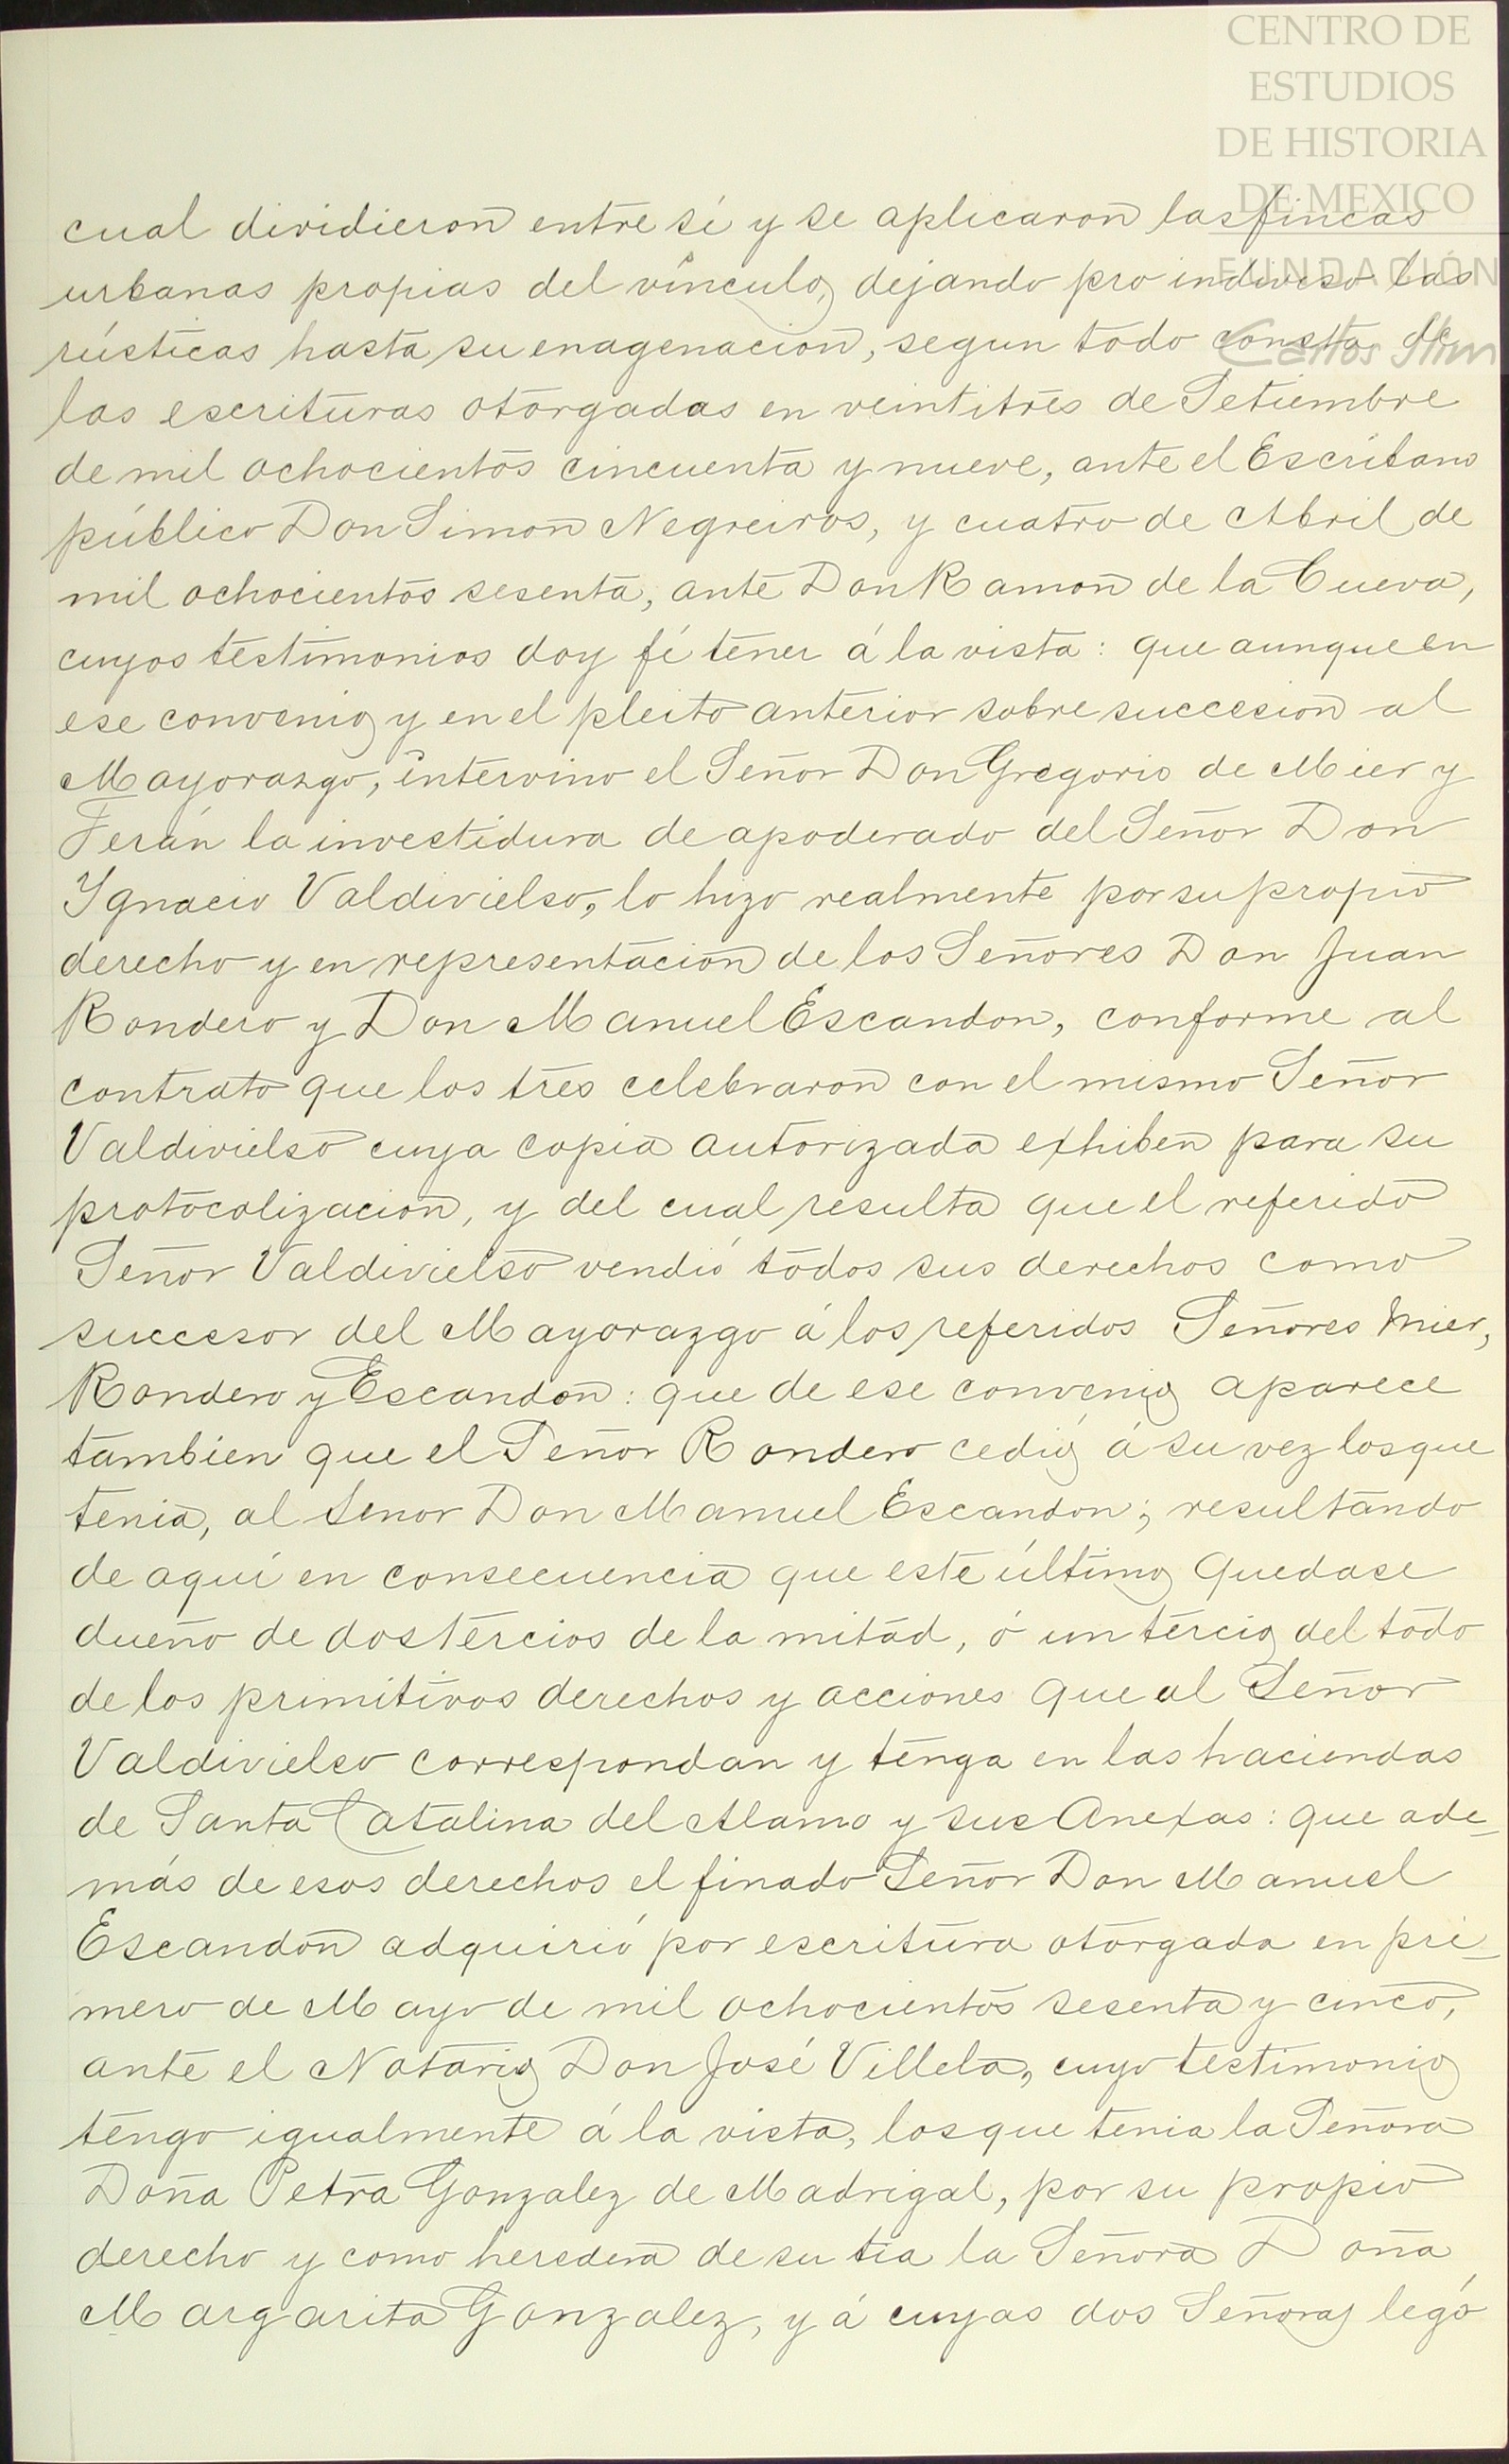 CENTRO DE
ESTUDIOS
DE HISTORIA
DE MEXICO
FUNDACIÓN
Carlos Slim
cual dividieron entre sí y se aplicaron las fincas
urbanas propias del vínculo, dejando pro indiviso las
rústicas hasta su enagenacion, segun todo consta de
las escrituras otorgadas en veintitres de Setiembre
de mil ochocientos cincuenta y nueve, ante el Escribano
público Don Simon Negreiros, y cuatro de Abril de
mil ochocientos sesenta, ante Don Ramon de la Cueva,
cuyos testimonios doy fé tener á la vista: que aunque en
ese convenio y en el pleito anterior sobre succesion al
Mayorazgo, intervino el Señor Don Gregorio de Mier y
Terán la investidura de apoderado del Señor Don
Ygnacio Valdivielso, lo hizo realmente por su propio
derecho y en representacion de los Señores Don Juan
Rondero y Don Manuel Escandon, conforme al
contrato que los tres celebraron con el mismo Señor
Valdivielso cuya copia autorizada exhiben para su
protocolizacion, y del cual resulta que el referido
Señor Valdivielso vendió todos sus derechos como
succesor del Mayorazgo á los referidos Señores Mier,
Rondero y Escandon: que de ese convenio aparece
tambien que el Señor Rondero cedió á su vez los que
tenia, al Senor Don Manuel Escandon; resultando
de aquí en consecuencia que este último quedase
dueño de dos tercios de la mitad, ó un tercio del todo
de los primitivos derechos y acciones que al Señor
Valdivielso correspondan y tenga en las haciendas
de Santa Catalina del Alamo y sus Anexas: que ade_
más de esos derechos el finado Señor Don Manuel
Escandon adquirió por escritura otorgada en pri_
mero de Mayo de mil ochocientos sesenta y cinco,
ante el Notario Don José Villela, cuyo testimonio
tengo igualmente á la vista, los que tenia la Señora
Doña Petra Gonzalez de Madrigal, por su propio
derecho y como heredera de su tia la Señora Doña
Margarita Gonzalez, y á cuyas dos Señoras legó